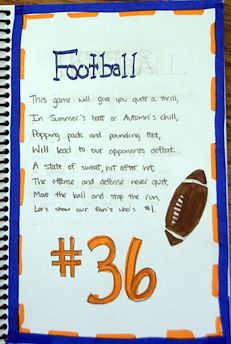 Football
This game will give you quite a thrill,
In Summer's heat or Autumn's chill,
Popping pads and pounding feet,
Will lead to our opponents defeat.
A state of sweat, hit after hit,
The offense and defense never quit,
Move the ball and stop the run,
Let's show our fan's who's #1.
#36